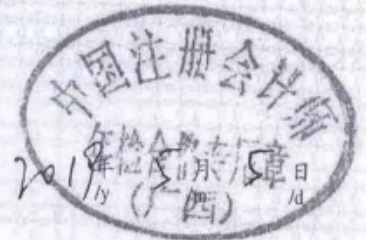 中国注册会计师
年检合格专用章
2019年5月5日
/y /m /d
(广西)